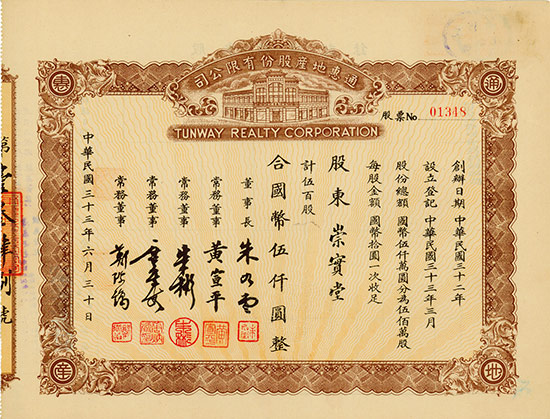 通惠地產股份有限公司
TUNWAY REALTY CORPORATION
股票No. 01348
通
惠
地
產
創辦日期 中華民國三十二年
設立登記 中華民國三十三年三月
股份總額 國幣伍仟萬圓分為伍佰萬股
每股金額 國幣拾圓一次收足
股東 崇實堂
計伍百股
合國幣伍仟圓整
董事長
常務董事 黃宣平
常務董事
常務董事
常務董事
中華民國三十三年六月三十日
第
號